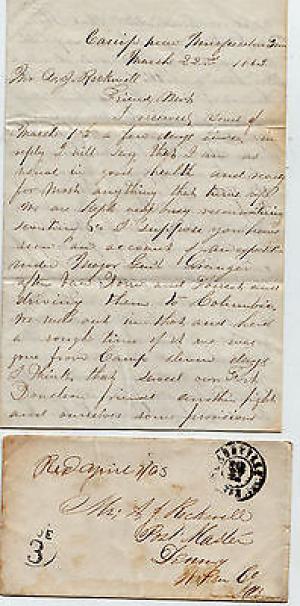 Camp near Murfreesboro Tenn
March 22nd 1863
Mr A. J. Rockwell
Friend
I received yours of
March 1st a few days since in
reply I will say that I am as
usual in good health and ready
for most anything that turns up
We are kept busy reconnoitering
scouting &c I suppose you have
seen an account of an expedition
under Major Genl Granger
after Van Dorn and Forrest and
driving them to Columbia
we were out in that and had
a rough time of it we was
gone from Camp eleven days
I think that saved our Fort
Donelson friends another fight
and ourselves some provisions
Recd April 1/63
Mr A J Rockwell
Post Master
Co
DUE
3